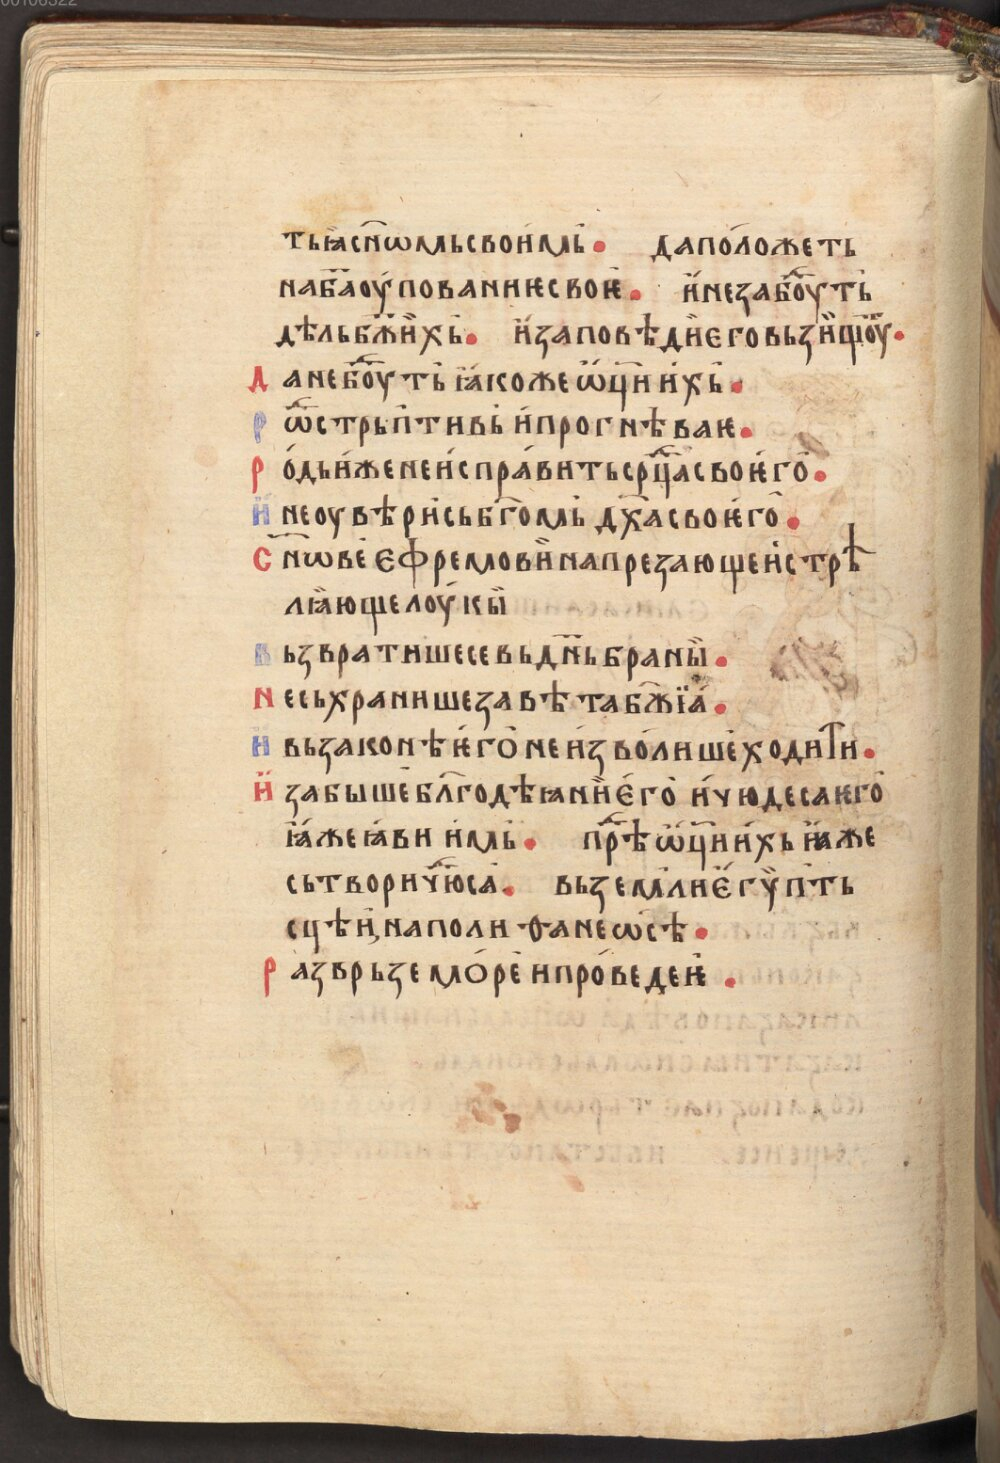 00106322
тьꙗсн҃ѡмьсвои́мь• даполо́жеть
наба҃оу́пованиѥсвоѥ̀• и҆незабоⷣуть
дѣльбж҃и҆хь• и҆заповѣдиѥ҆говьзи҆щꙋⷮ•
данебоⷣуть ꙗ҆коже ѡ҆ц҃и и́хь•
рѡⷣстрьптивь и҆прогнѣваѥ•
ро́дьи́женеи́спра́витьсрⷣцасвоѥ́го̀•
и҆неоувѣри́сьбг҃омь дх҃асвоѥ́го̀•
сн҃ѡве є҆фремови҆напрезающеи́стрѣ
лꙗ҆ющелоу́кы̀
вьзвратишесевьдн҃ьбраны̀•
несьхранишезавѣтабж҃їа•
и҆вьзаконѣѥ́го̀неи҆зво́лишеходити•
и҆забышебл҃годѣꙗни҆ѥ҆го̀ и҆чюдесаѥго̀
ꙗ҆жеꙗ҆ви и́мь• прⷣѣ ѡ҆ц҃и и́хь ꙗ҆же
сьтворичю҃са• вьземлиє҆гѷпть
сцѣи,наполи ѳанеѡсѣ•
разврьземо́реипро́ведеѥ̀•